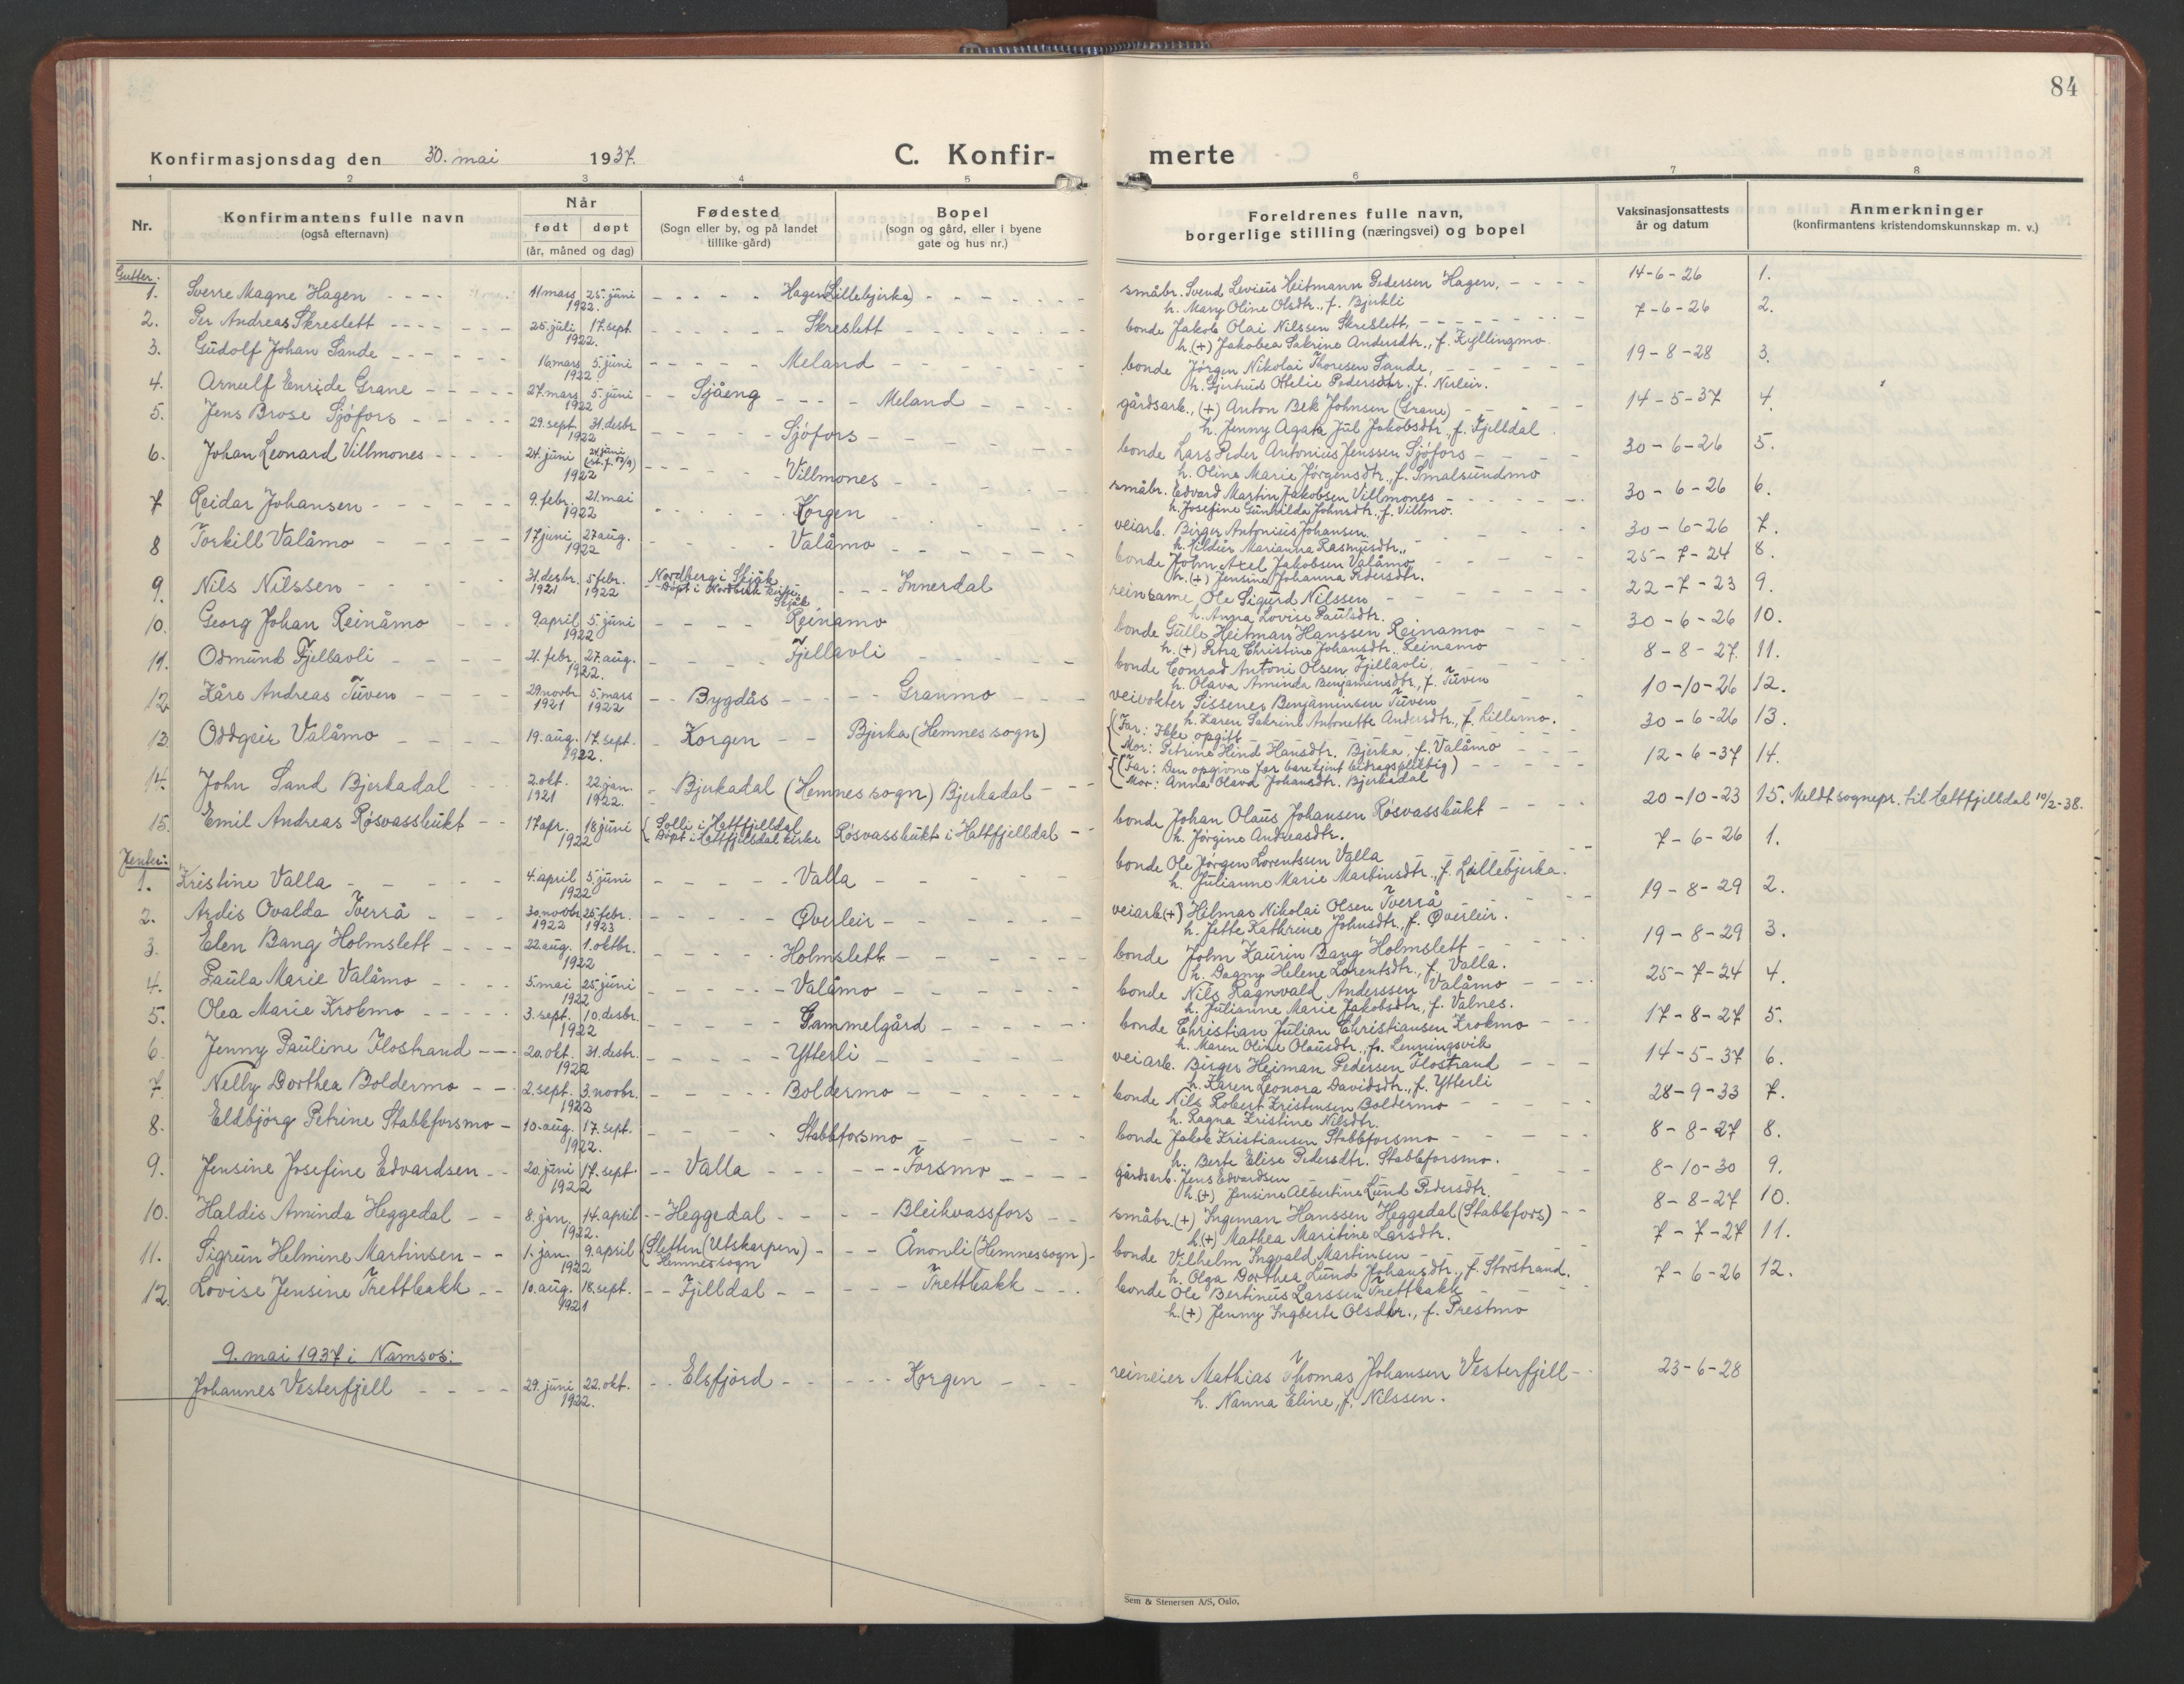 84
Konfirmasjonsdag den 30. mai 1937.
C. Konfir-
merte
1 2 3 4 5 6 7 8
Nr.
Konfirmantens fulle navn
(også efternavn)
Når
født døpt
(år, måned og dag)
Fødested
(Sogn eller by, og på landet
tillike gård)
Bopel
(sogn og gård, eller i byene
gate og hus nr.)
Foreldrenes fulle navn,
borgerlige stilling (næringsvei) og bopel
Vaksinasjonsattests
år og datum
Anmerkninger
(konfirmantens kristendomskunnskap m. v.)
Gutter:
1. Sverre Magne Hagen 11 mars 25. juni 1922. Hagen (Lillebjerka) småbr. Svend Levius Heitmann Pedersen Hagen, 14-6-26 1.
h. Mary Oline Olsdtr., f. Bjerkli
2. Per Andreas Skreslett 25. juli 17. sept. 1922. Skreslett bonde Jakob Olai Nilssen Skreslett, 7-6-26 2.
h. (+) Jakobea Sakrine Andersdtr., f. Kyllingmo.
3. Gudolf Johan Sande 16 mars 5. juni 1922. Meland bonde Jørgen Nikolai Thoresen Sande, 19-8-28 3.
h. Gjertrud Otelie Pedersdtr. f. Nerleir.
4. Arnulf Enride Grane 27. mars 5. juni 1922 Sjåeng Meland gårdsarb., (+) Anton Bek Johnsen (Grane) 14-5-37 4.
h. Jenny Agata Jul Jakobsdtr., f. Fjelldal.
5. Jens Brose Sjöfors 29. sept. 31. desbr. 1922 Sjöfors bonde Lars Peder Antonius Jenssen Sjöfors 30-6-26 5.
h. Oline Marie Jørgensdtr., f. Smalsundmo
6. Johan Leonard Villmones 24. juni 24. juni (st. f. 17/9) 1922 Villmones småbr. Edvard Martin Jakobsen Villmones 30-6-26 6.
h. Josefine Gunhilda Johnsdtr., f. Villmo.
7 Reidar Johansen 9. febr. 21. mai 1922 Korgen veiarb. Birger Antonius Johansen 30-6-26 7.
h. Hildur Marianna Rasmusdtr.,
8 Torkill Valåmo 17 juni 27 aug. 1922 Valåmo bonde John Axel Jakobsen Valåmo 25-7-24 8.
h. (+) Jensine Johanna Pedersdtr.
9. Nils Nilssen 31. desbr. 1921 5 febr. 1922 Nordberg i Skjåk Døpt i Nordberk kirke, Skjåk Innerdal reinsame Ole Sigurd Nilssen 22-7-23 9.
h. Anna Lovise Paulsdtr.
10. Georg Johan Reinåmo 9. april 5. juni 1922 Reinåmo bonde Gulle Heitman Hanssen Reinamo 30-6-26 10.
h. (+) Petra Christine Johansdtr. Reinamo
11. Odmund Fjellavli 21. febr. 27. aug. 1922. Fjellavli bonde Conrad Antoni Olsen Fjellavli. 8-8-27. 11.
h. Olava Aminda Benjaminsdtr., f. Tuven
12 Kåre Andreas Tuven 29 novbr 1921 5. mars 1922 Bygdås Granmo veivokter Sissenes Benjaminsen Tuven 10-10-26 12.
h. Karen Sakrine Antonette Andersdtr., f. Lillemo.
13. Oddgeir Valåmo 19. aug. 17. sept. 1922. Korgen Bjerka (Hemnes sogn) (Far: Ikke opgitt 30-6-26 13.
Mor: Petrine Hind Hansdtr. Bjerka, f. Valåmo
14. John Sand Bjerkadal 2. okt. 1921 22. jan. 1922. Bjerkadal (Hemnes sogn) Bjerkadal (Far: Den opgivne far bare kjent bidragspliktig) 12-6-37 14.
Mor: Anna Olava Johansdtr. Bjerkadal
15. Emil Andreas Røsvassbukt 17 apr. 18 juni 1922 Solli i Hattfjelldal Døpt i Hattfjelldal kirke Røsvassbukt i Hattfjelldal bonde Johan Olaus Johansen Røsvassbukt 20-10-23 15. Meldt sognepr. til Hattfjelldal 10/2-38.
h. Jørgine Andreasdtr.
Jenter:
1. Kristine Valla 4. april 5. juni 1922 Valla bonde Ole Jørgen Lorentssen Valla 7-6-26 1.
h. Julianne Marie Martinsdtr., f. Lillebjerka.
2. Ardis Ovalda Tverrå 30 novbr 1922 25 febr. 1923 Øverleir veiarb. (+) Hilmar Nikolai Olsen Tverrå 19-8-29 2.
h. Jette Kathrine Johnsdtr., f. Øverleir.
3. Elen Bang Holmslett 22 aug. 1. oktbr. 1922 Holmslett bonde John Kaurin Bang Holmslett 19-8-29 3.
h. Dagny Helene Lorentsdtr., f. Valla.
4. Paula Marie Valåmo 5. mai 25. juni 1922 Valåmo bonde Nils Ragnvald Anderssen Valåmo 25-7-24 4.
h. Julianne Marie Jakobsdtr., f. Valnes.
5. Olea Marie Krokmo 3. sept. 10. desbr. 1922 Gammelgård bonde Christian Julian Christiansen Krokmo 17-8-27 5.
h. Maren Oline Olausdtr., f. Lenningsvik
6. Jenny Pauline Flostrand 20. okt. 31. desbr. 1922 Ytterli veiarb. Birger Heiman Pedersen Flostrand 14-5-37 6.
h. Karen Leonora Davidsdtr., f. Ytterli
7. Nelly Dorthea Boldermo 2. sept. 3. novbr. 1922 Boldermo bonde Nils Robert Kristensen Boldermo 28-9-33 7.
h. Ragna Kristine Nilsdtr.
8. Eldbjörg Petrine Stabbforsmo 10. aug. 17. sept. 1922. Stabbforsmo bonde Jakob Kristiansen Stabbforsmo 8-8-27 8.
h. Berte Elise Pedersdtr. Stabbforsmo.
9. Jensine Josefine Edvardsen 20. juni 17. sept. 1922 Valla Forsmo gårdsarb. Jens Edvardsen 8-10-30 9.
h (+) Jensine Albertine Lund Pedersdtr.
10. Haldis Aminda Heggedal 8. jan. 14. april 1922. Heggedal Bleikvassfors småbr. (+) Ingeman Hanssen Heggedal (Stabbfors) 8-8-27 10.
h (+) Mathea Maritine Larsdtr.
11. Sigrun Helmine Martinsen 1. jan. 9. april 1922 (Sletten (Utskarpen) Hemnes sogn Ånonli (Hemnes sogn) bonde Vilhelm Ingvald Martinsen 7-7-27 11.
h. Olga Dorthea Lund Johansdtr., f. Storstrand.
12. Lovise Jensine Trettbakk 10. aug. 18. sept. 1921 Fjelldal Trettbakk bonde Ole Bertinus Larssen Trettbakk 7-6-26 12.
h. (+) Jenny Ingberte Olsdtr., f. Prestmo
9. mai 1937 i Namsos:
Johannes Vesterfjell 29. juni 22. okt. 1922. Elsfjord Korgen reineier Mathias Thomas Johansen Vesterfjell 23-6-28
h. Nanna Eline, f. Nilssen.
Sem & Stenersen A/S, Oslo.